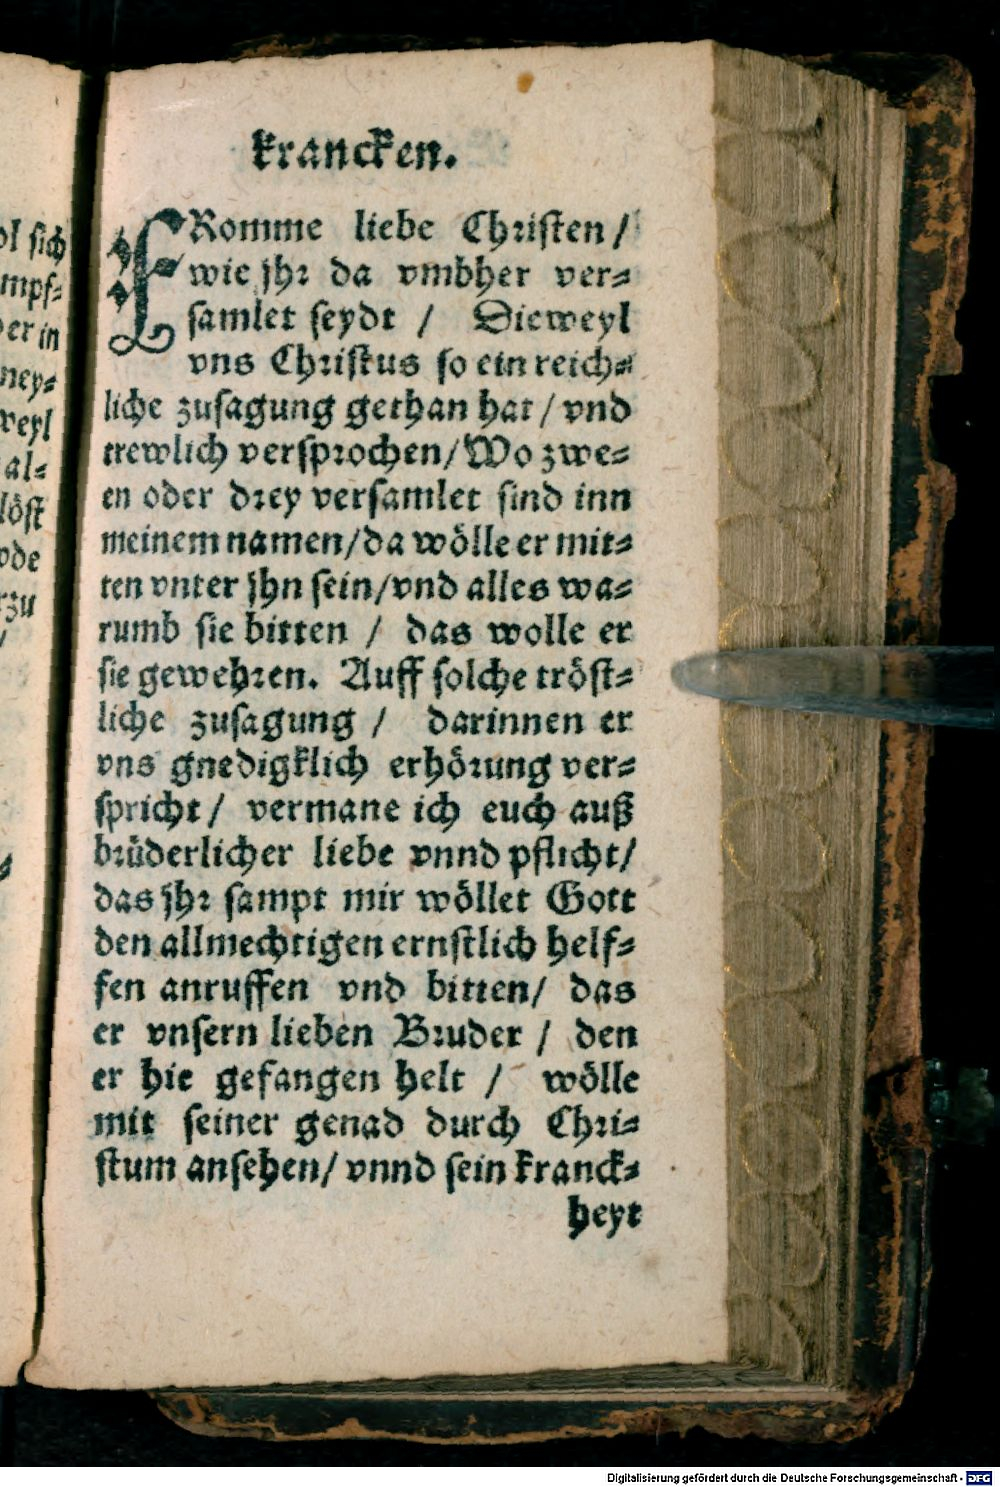 krancken.
FRomme liebe Christen /
wie jhr da vmbher ver-
samlet seydt / Dieweyl
vns Christus so ein reich-
liche zusagung gethan hat / vnd
trewlich versprochen / Wo zwe-
en oder drey versamlet sind inn
meinem namen / da wölle er mit-
ten vnter jhn sein / vnd alles wa-
rumb sie bitten / das wolle er
sie gewehren. Auff solche tröst-
liche zusagung / darinnen er
vns gnedigklich erhörung ver-
spricht / vermane ich euch auß
brüderlicher liebe vnnd pflicht /
das jhr sampt mir wöllet Gott
den allmechtigen ernstlich helf-
fen anruffen vnd bitten / das
er vnsern lieben Bruder / den
er hie gefangen helt / wölle
mit seiner genad durch Chri-
stum ansehen / vnnd sein kranck-
heyt
ol sich
mpf-
der in
ney-
weyl
al-
löst
ode
rzu
/
Digitalisierung gefördert durch die Deutsche Forschungsgemeinschaft - DFG